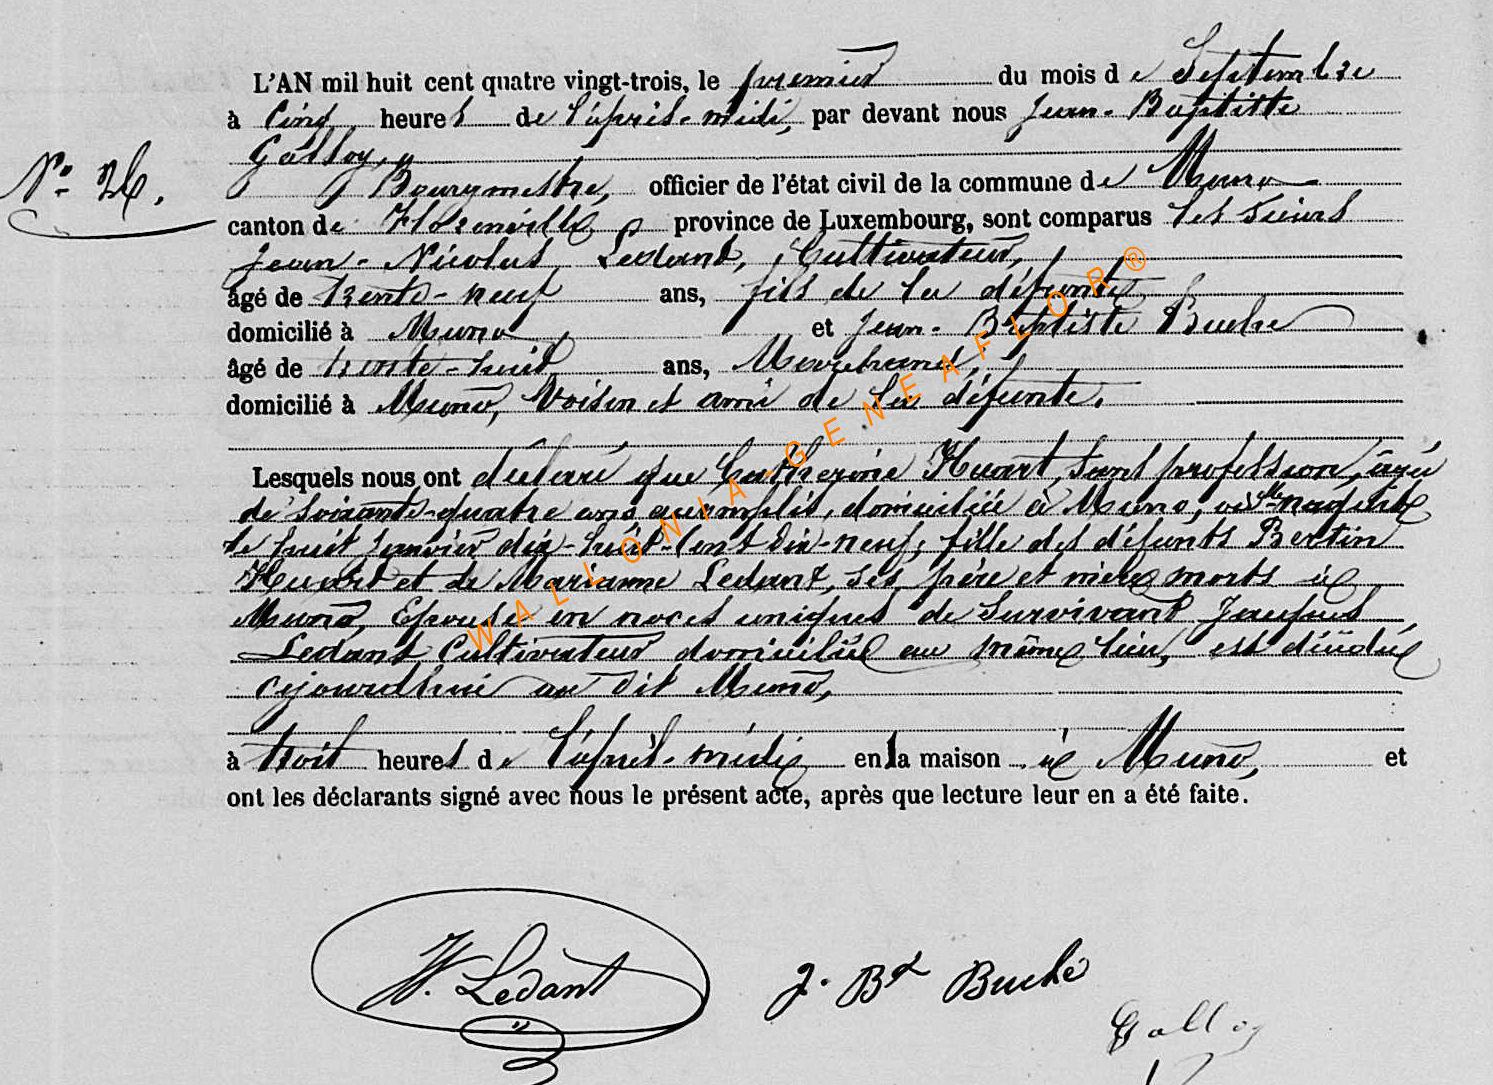 L'AN mil huit cent quatre vingt-trois, le premier du mois de Septembre
à Cinq heures de l'après-midi, par devant nous Jean-Baptiste
Galloy,
N° 26.
Bourgmestre, officier de l'état civil de la commune de Muno
canton de Florenville province de Luxembourg, sont comparus les sieurs
Jean-Nicolas Ledant, Cultivateur,
âgé de trente-neuf ans, fils de la défunte
domicilié à Muno et Jean-Baptiste Buche
âgé de trente-huit ans, Marchand,
domicilié à Muno, Voisin et ami de la défunte.
Lesquels nous ont déclaré que Catherine Huart, sans profession, âgée
de soixante-quatre ans accomplis, domiciliée à Muno, où elle naquit
le huit Janvier dix-huit-cent dix-neuf, fille des défunts Bertin
Huart et de Marianne Ledant, ses père et mère morts à
Muno, Epouse en noces uniques de survivant Jacques
Ledant Cultivateur domicilié au même lieu, est décédée
cejourd'hui au dit Muno,
à trois heures de l'après-midi en la maison à Muno, et
ont les déclarants signé avec nous le présent acte, après que lecture leur en a été faite.
N. Ledant
J. Bte Buche
Galloy
WALLONIA-GENEAFLOR®